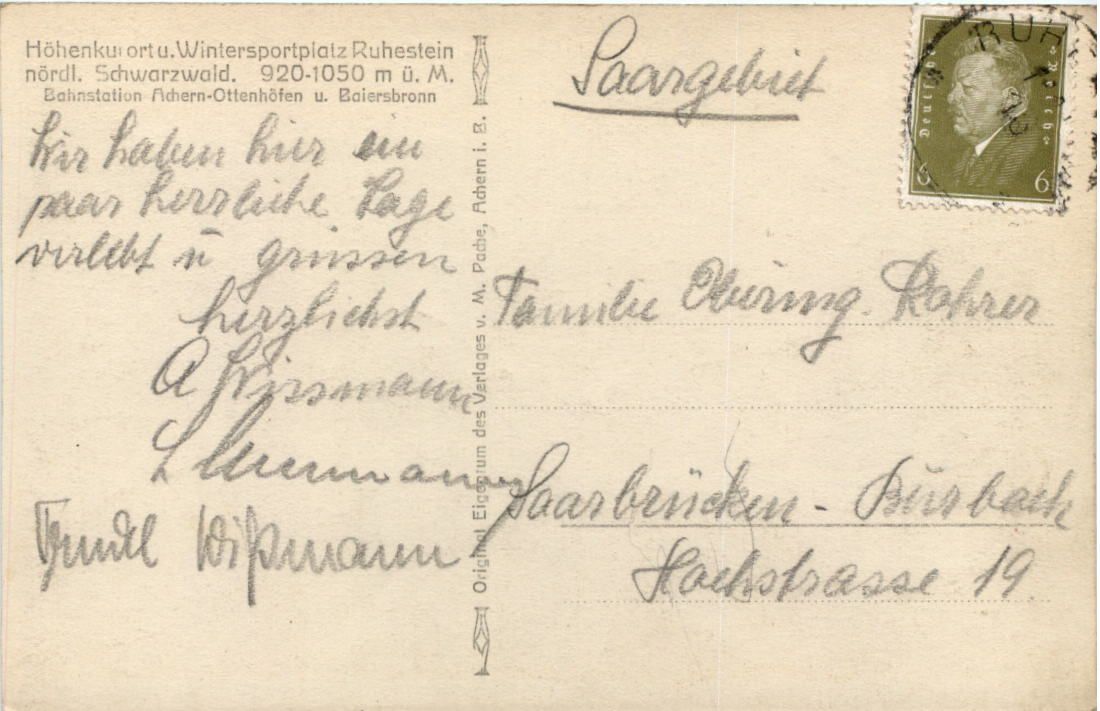 Höhenkurort u. Wintersportplatz Ruhestein
nördl. Schwarzwald. 920-1050 m ü. M.
Bahnstation Achern-Ottenhöfen u. Baiersbronn
Wir haben hier ein
paar herrliche Tage
verlebt u grüssen
herzlichst
A Wissmann
L
Trudel Wißmann
Original Eigentum des Verlages v. M. Pache, Achern i. B.
Saargebiet
Deutsches Reich
6 6
RUH
Familie Obering. Rohrer
Saarbrücken - Burbach
Hochstrasse 19.